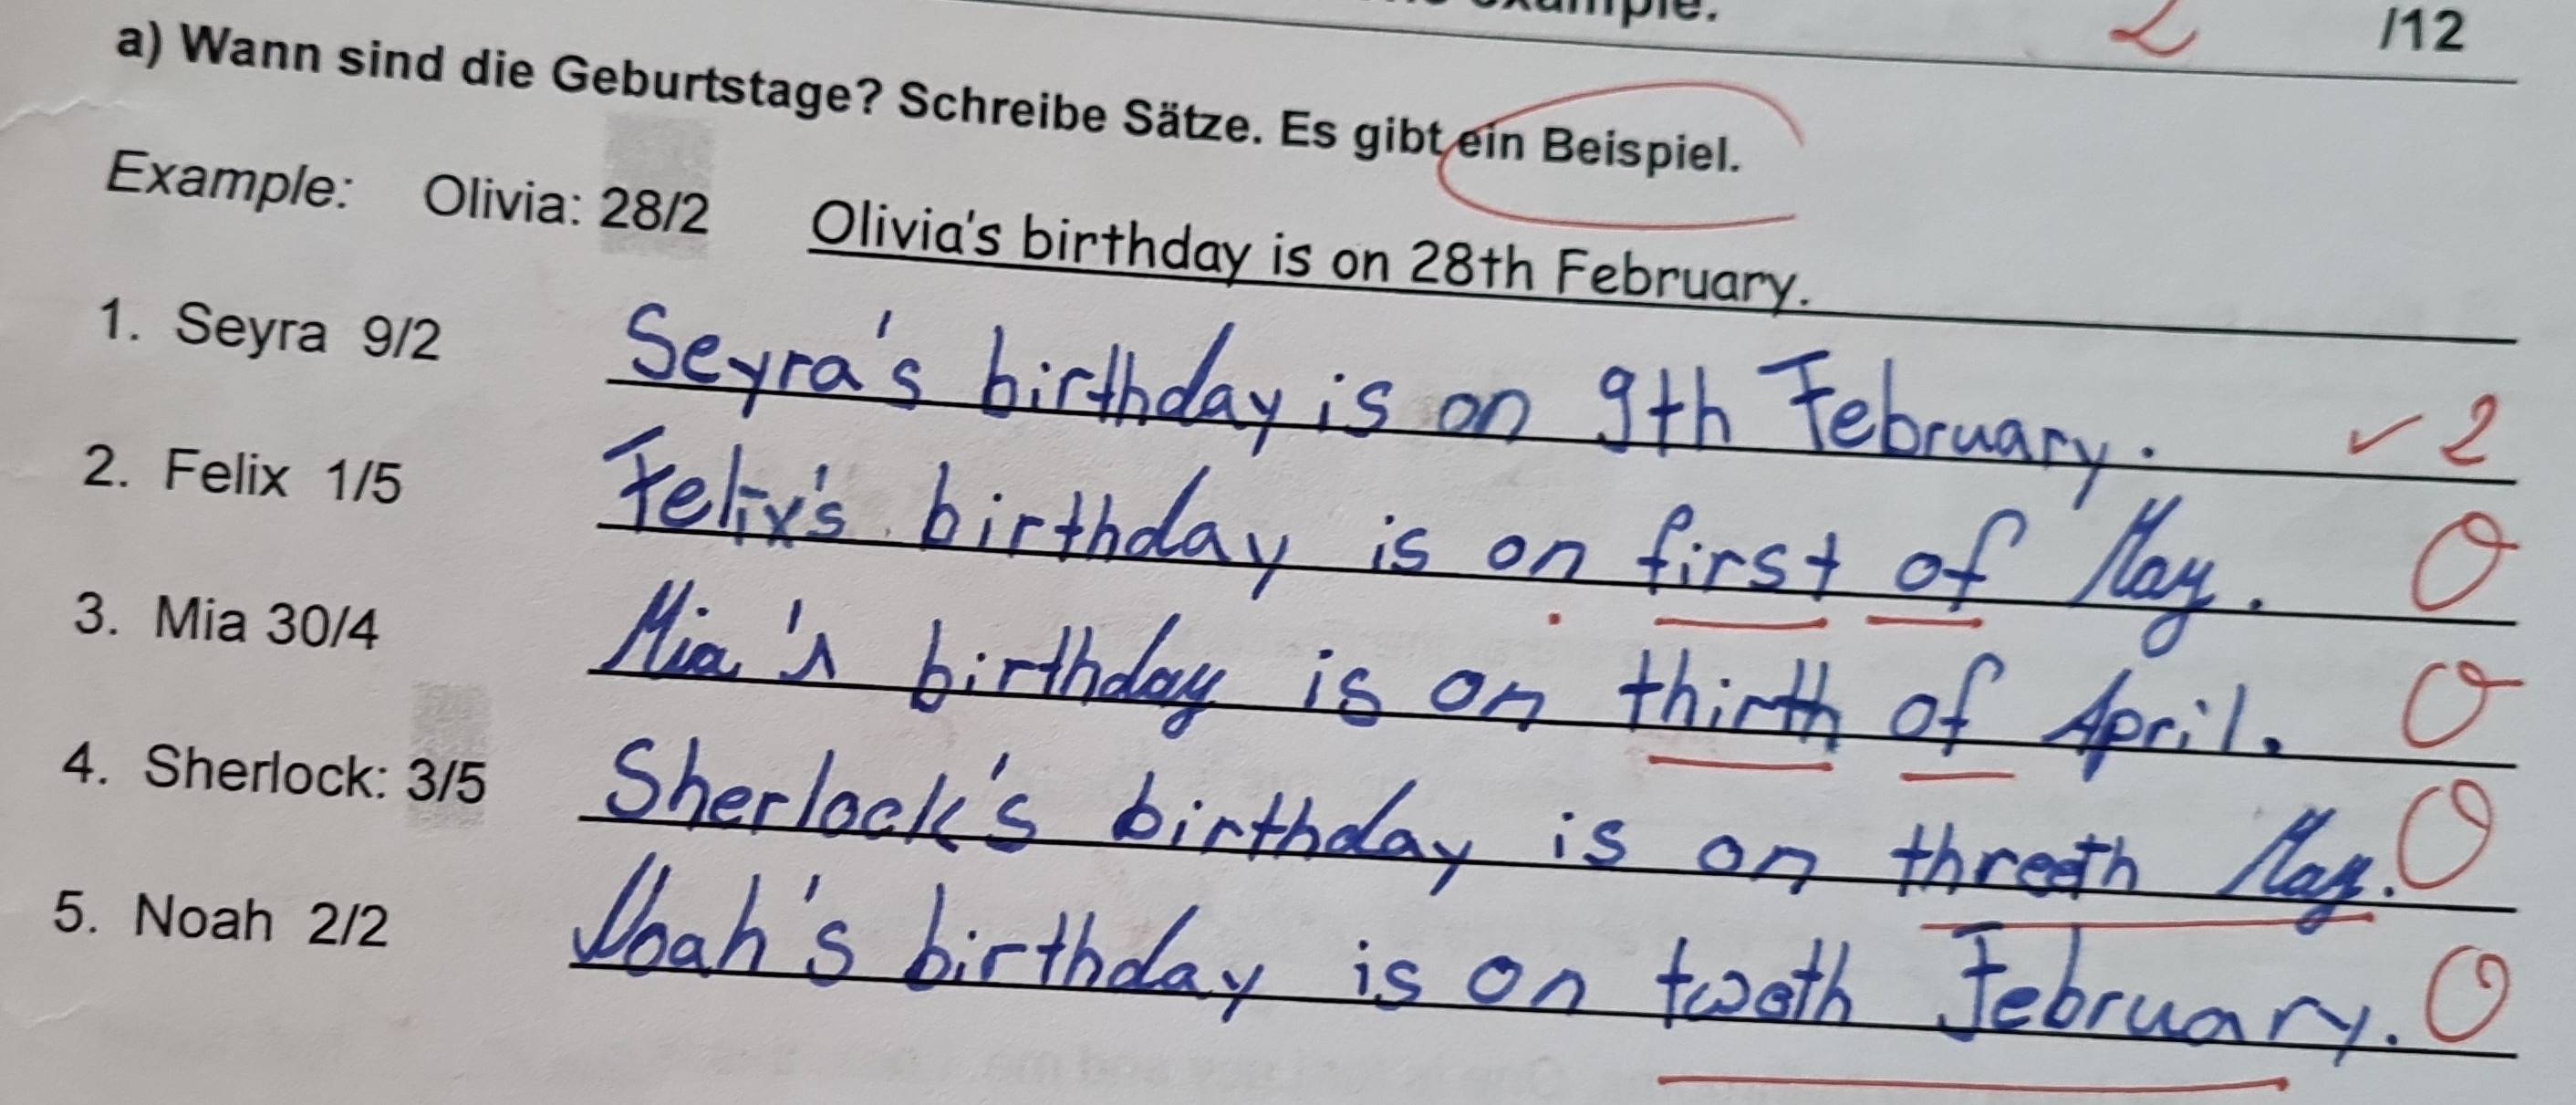 example.
2 /12
a) Wann sind die Geburtstage? Schreibe Sätze. Es gibt ein Beispiel.
Example: Olivia: 28/2 Olivia's birthday is on 28th February.
1. Seyra 9/2 Seyra's birthday is on 9th February. ✓ 2
2. Felix 1/5 Felix's birthday is on first of May. 0
3. Mia 30/4 Mia's birthday is on thirth of April. 0
4. Sherlock: 3/5 Sherlock's birthday is on threeth May. 0
5. Noah 2/2 Noah's birthday is on twoth February. 0